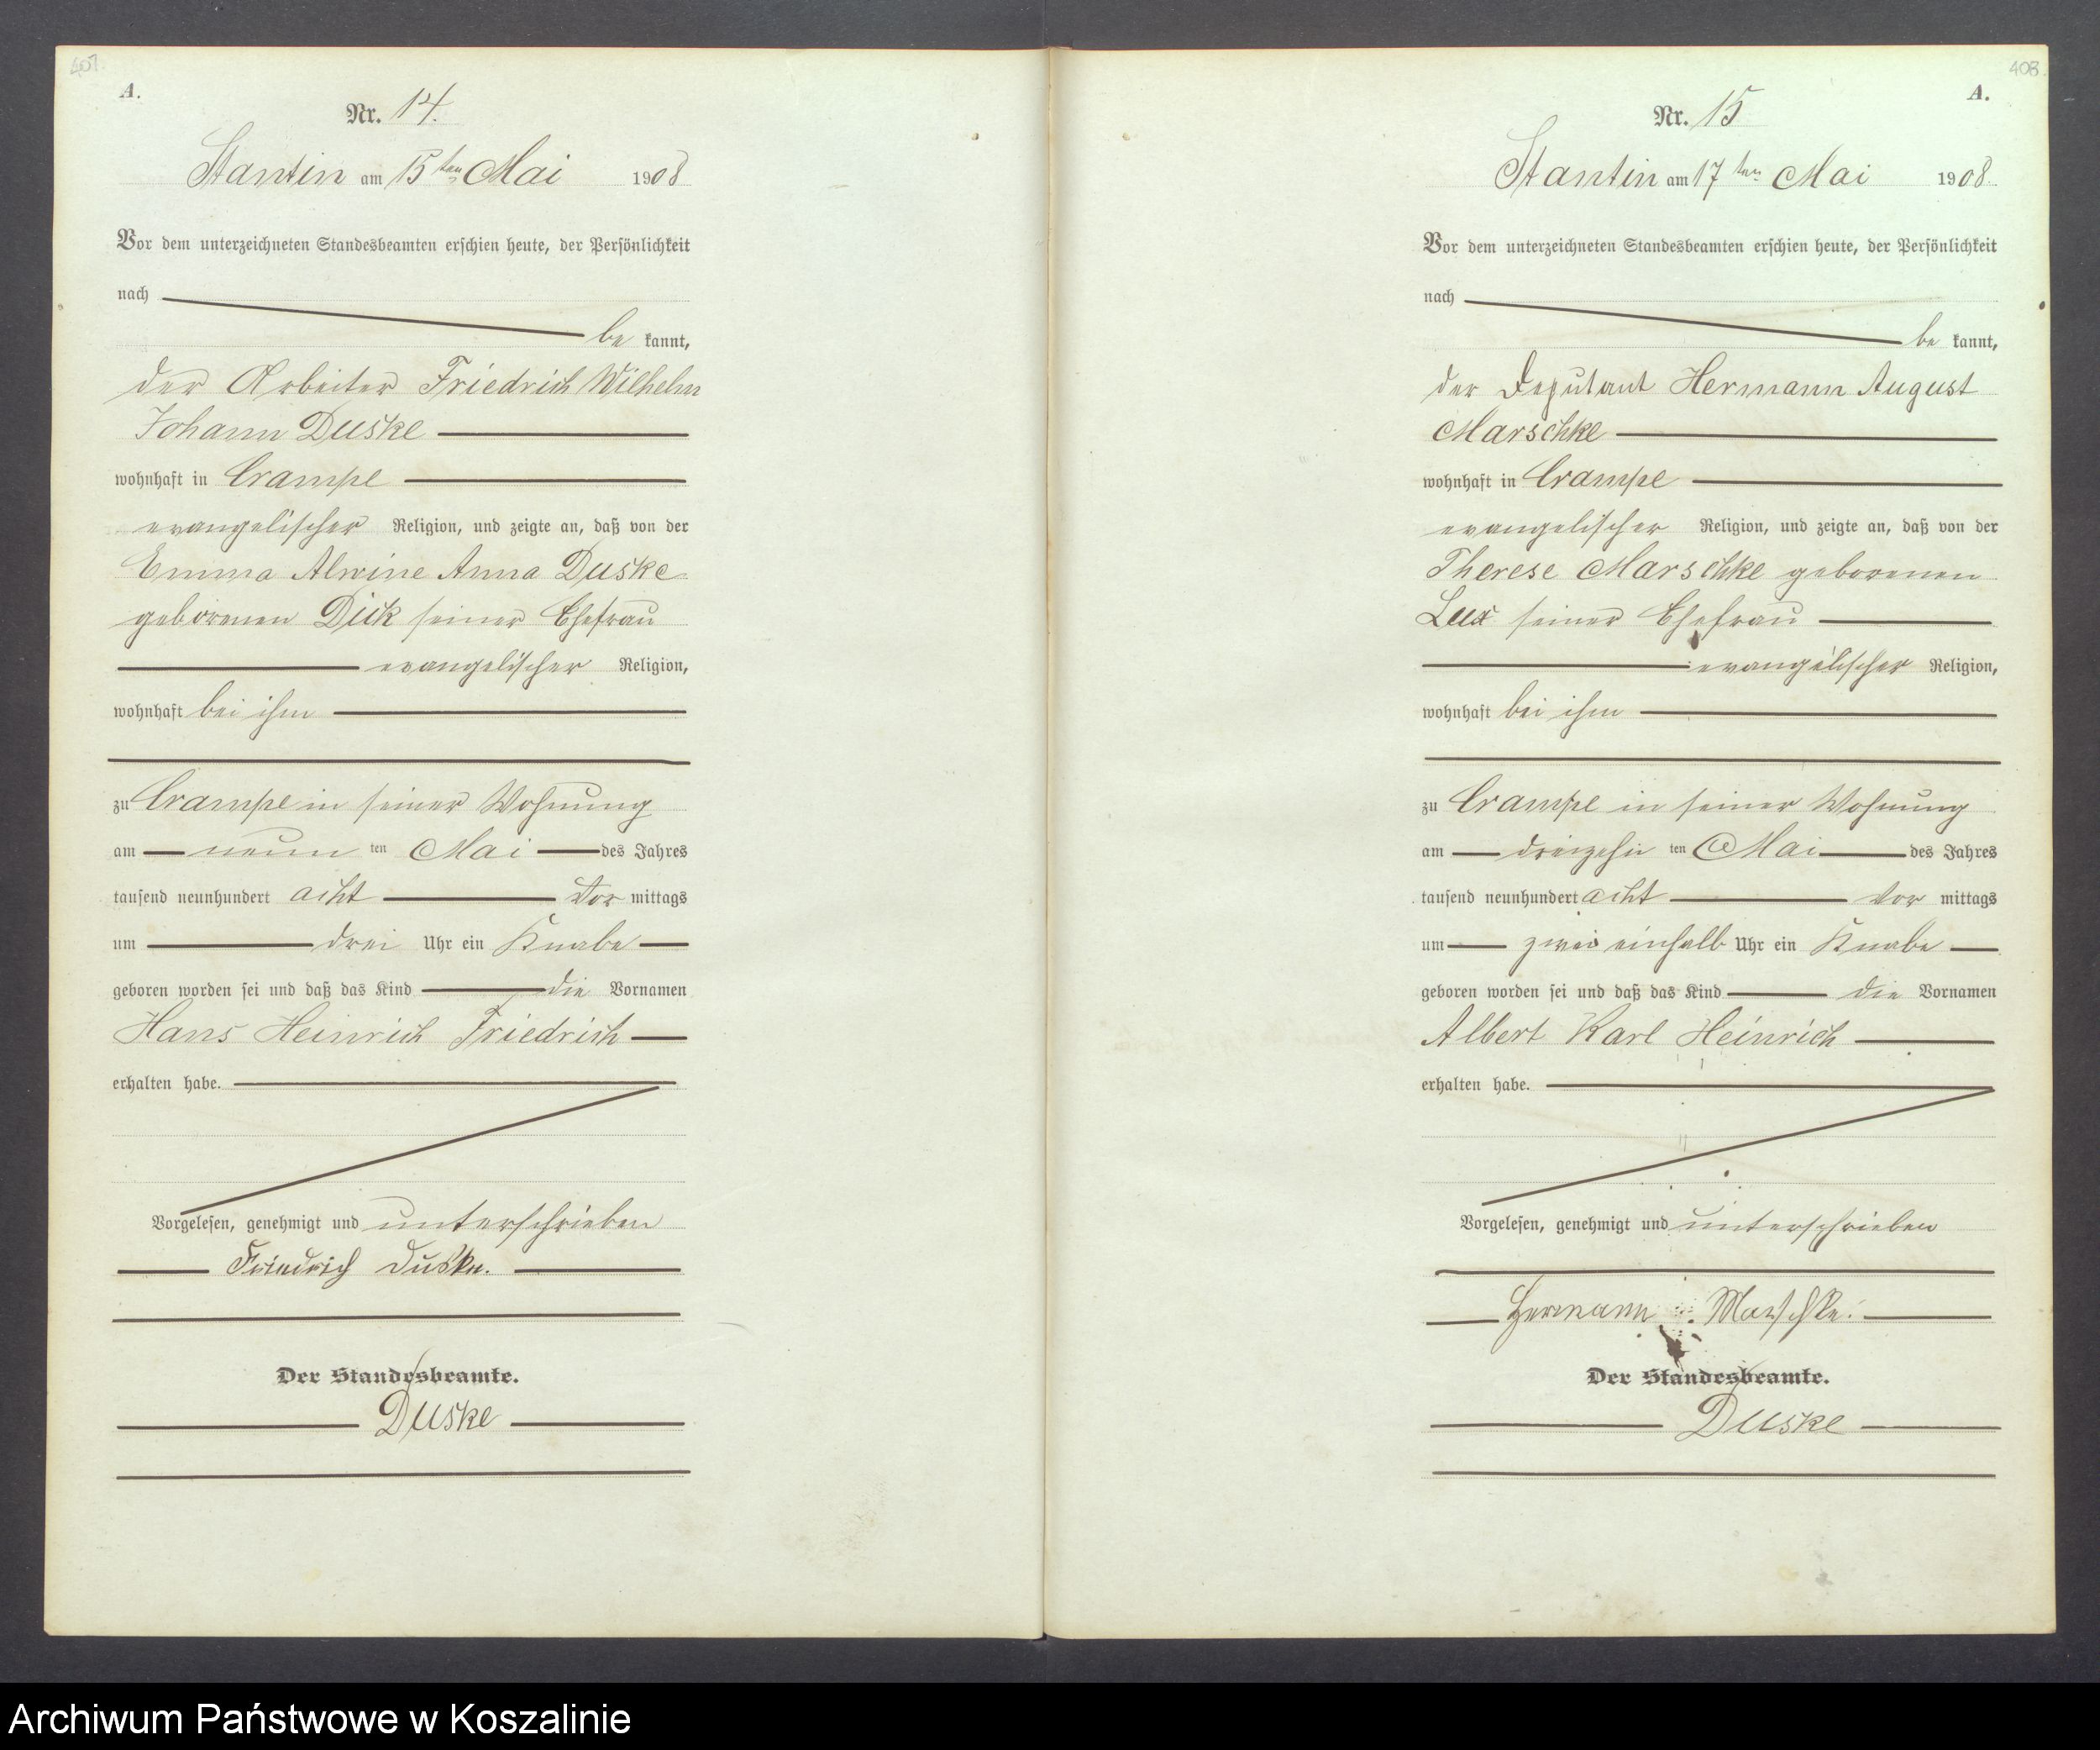 407.
A.
Nr. 14.
Stantin am 15ten Mai 1908
Vor dem unterzeichneten Standesbeamten erschien heute, der Persönlichkeit
nach
be kannt,
der Arbeiter Friedrich Wilhelm
Johann Duske
wohnhaft in Crampe
evangelischer Religion, und zeigte an, daß von der
Emma Alwine Anna Duske
geborenen Dick seiner Ehefrau
evangelischer Religion,
wohnhaft bei ihm
zu Crampe in seiner Wohnung
am neun ten Mai des Jahres
tausend neunhundert acht Vor mittags
um drei Uhr ein Knabe
geboren worden sei und daß das Kind die Vornamen
Hans Heinrich Friedrich
erhalten habe.
Vorgelesen, genehmigt und unterschrieben
Friedrich Duske.
Der Standesbeamte.
Duske
408.
A.
Nr. 15
Stantin am 17ten Mai 1908.
Vor dem unterzeichneten Standesbeamten erschien heute, der Persönlichkeit
nach
be kannt,
der Deputant Hermann August
Marschke
wohnhaft in Crampe
evangelischer Religion, und zeigte an, daß von der
Therese Marschke geborenen
Lux seiner Ehefrau
evangelischer Religion,
wohnhaft bei ihm
zu Crampe in seiner Wohnung
am dreizehn ten Mai des Jahres
tausend neunhundert acht Vor mittags
um zwei einhalb Uhr ein Knabe
geboren worden sei und daß das Kind die Vornamen
Albert Karl Heinrich
erhalten habe.
Vorgelesen, genehmigt und unterschrieben
Hermann Marschke.
Der Standesbeamte.
Duske
Archiwum Państwowe w Koszalinie